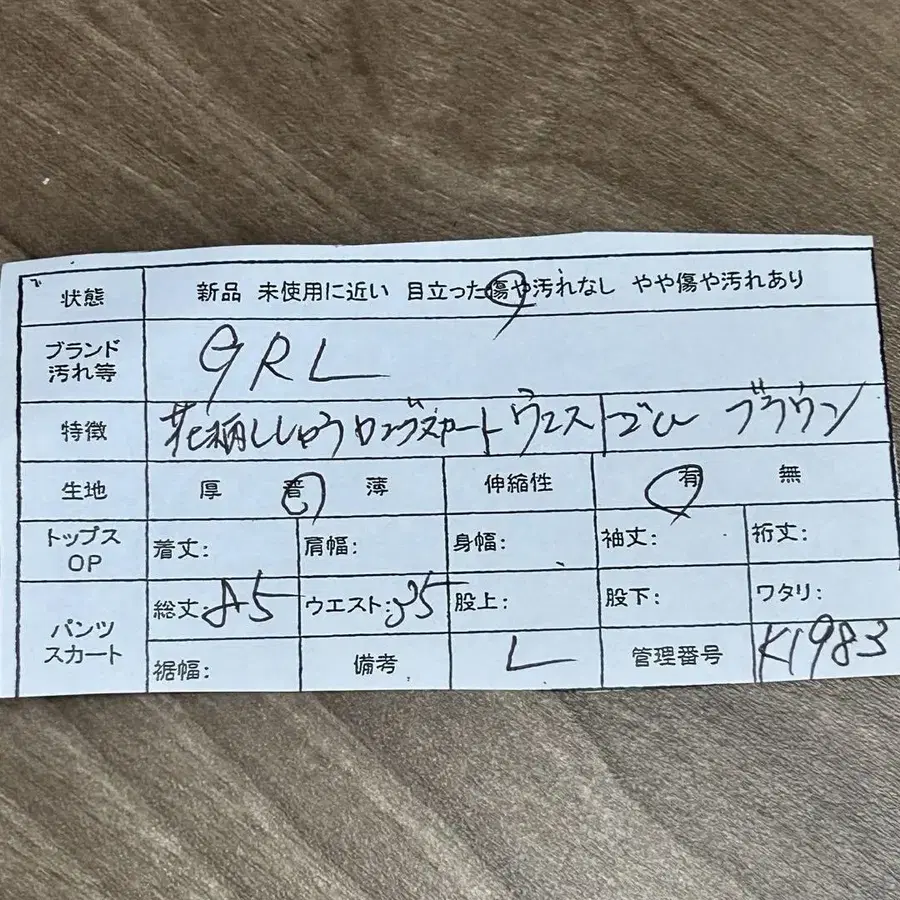 状態 新品 未使用に近い 目立った傷や汚れなし やや傷や汚れあり
ブランド
汚れ等 GRL
特徴 花柄ししゅうロングスカート ウエストゴム ブラウン
生地 厚 普 薄 伸縮性 有 無
トップス
OP 着丈: 肩幅: 身幅: 袖丈: 裄丈:
パンツ
スカート 総丈:85 ウエスト:35 股上: 股下: ワタリ:
裾幅: 備考 L 管理番号 K1983